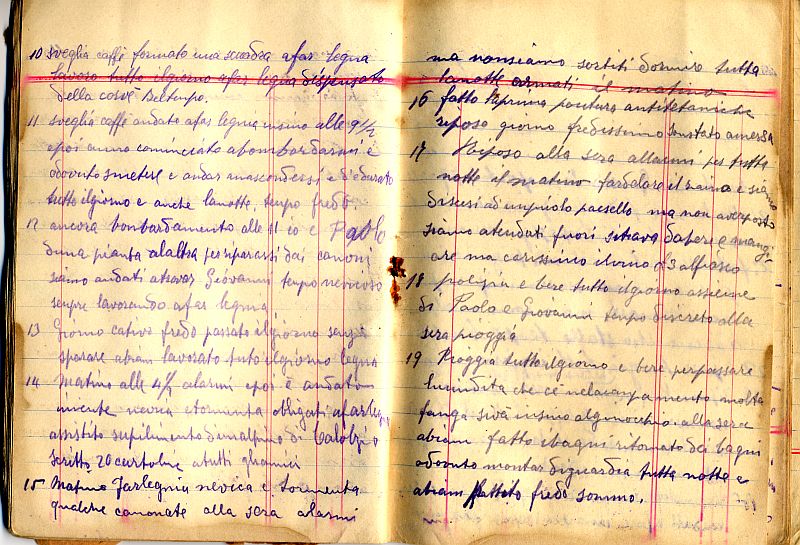 10 sveglia caffè formato una squadra afar legna
lavoro tutto ilgiorno afar legna dispensato
della corvè Beltempo.
11 sveglia caffè andato afar legna insino alle 9 1/2
epoi anno cominciato abombardarsi è
odovuto smetere e andar anascondessi e d'edurato
tutto ilgiorno e anche lanotte. tempo fredo.
12 ancora bombardamento alle 11 io e Paolo
duna pianta alaltra per ripararsi dai canoni
siamo andati atrovar Giovanni tempo nevicoso
sempre lavorando afar legna
13 Giorno cativo fredo passato ilgiorno senza
sparare abiam lavorato tuto ilgiorno legna
14 Matino alle 4 1/2 alarmi epoi è andato in
niente nevica etormenta obligati afarlegna
assistito supilimento dunalpino di Calolzio
scritto 20 cartoline atutti gliamici
15 Matino Farlegnia nevica e tormenta
qualche canonate alla sera alarmi
ma nonsiamo sortiti dormire tutta
lanotte armati il matino
16 fatto laprima puntura antitetaniche
riposo giorno fredissimo
17 Riposo alla sera allarmi per tutta
notte il matino fardalare il zaino e siamo
discesi ad unpicolo paesello ma non aveaposto
siamo atendati fuori sitrava dabere e mangi-
are ma carissimo ilvino £3 alfiasco
18 pulizia e bere tutto ilgiorno assieme
di Paolo e Giovanni tempo discreto alla
sera pioggia
19 Pioggia tutto ilgiorno e bere perpassare
lumidita che cè nelacampamento molta
fanga sivà insino alginocchio. alla sera
abiam fatto ibagni ritornato dei bagni
odovuto montar diguardia tutta notte e
abiam patito fredo sommo.